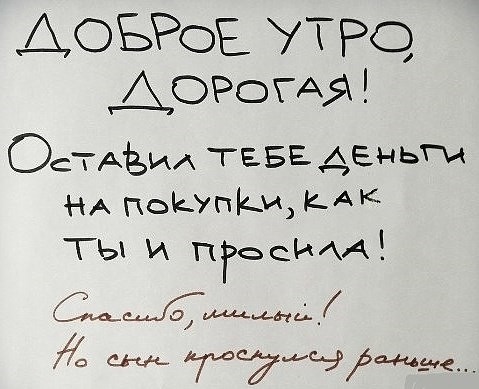 ДОБРОЕ УТРО,
ДОРОГАЯ!
ОСТАВИЛ ТЕБЕ ДЕНЬГИ
НА ПОКУПКИ, КАК
ТЫ И ПРОСИЛА!
Спасибо, милый!
Но сын проснулся раньше...